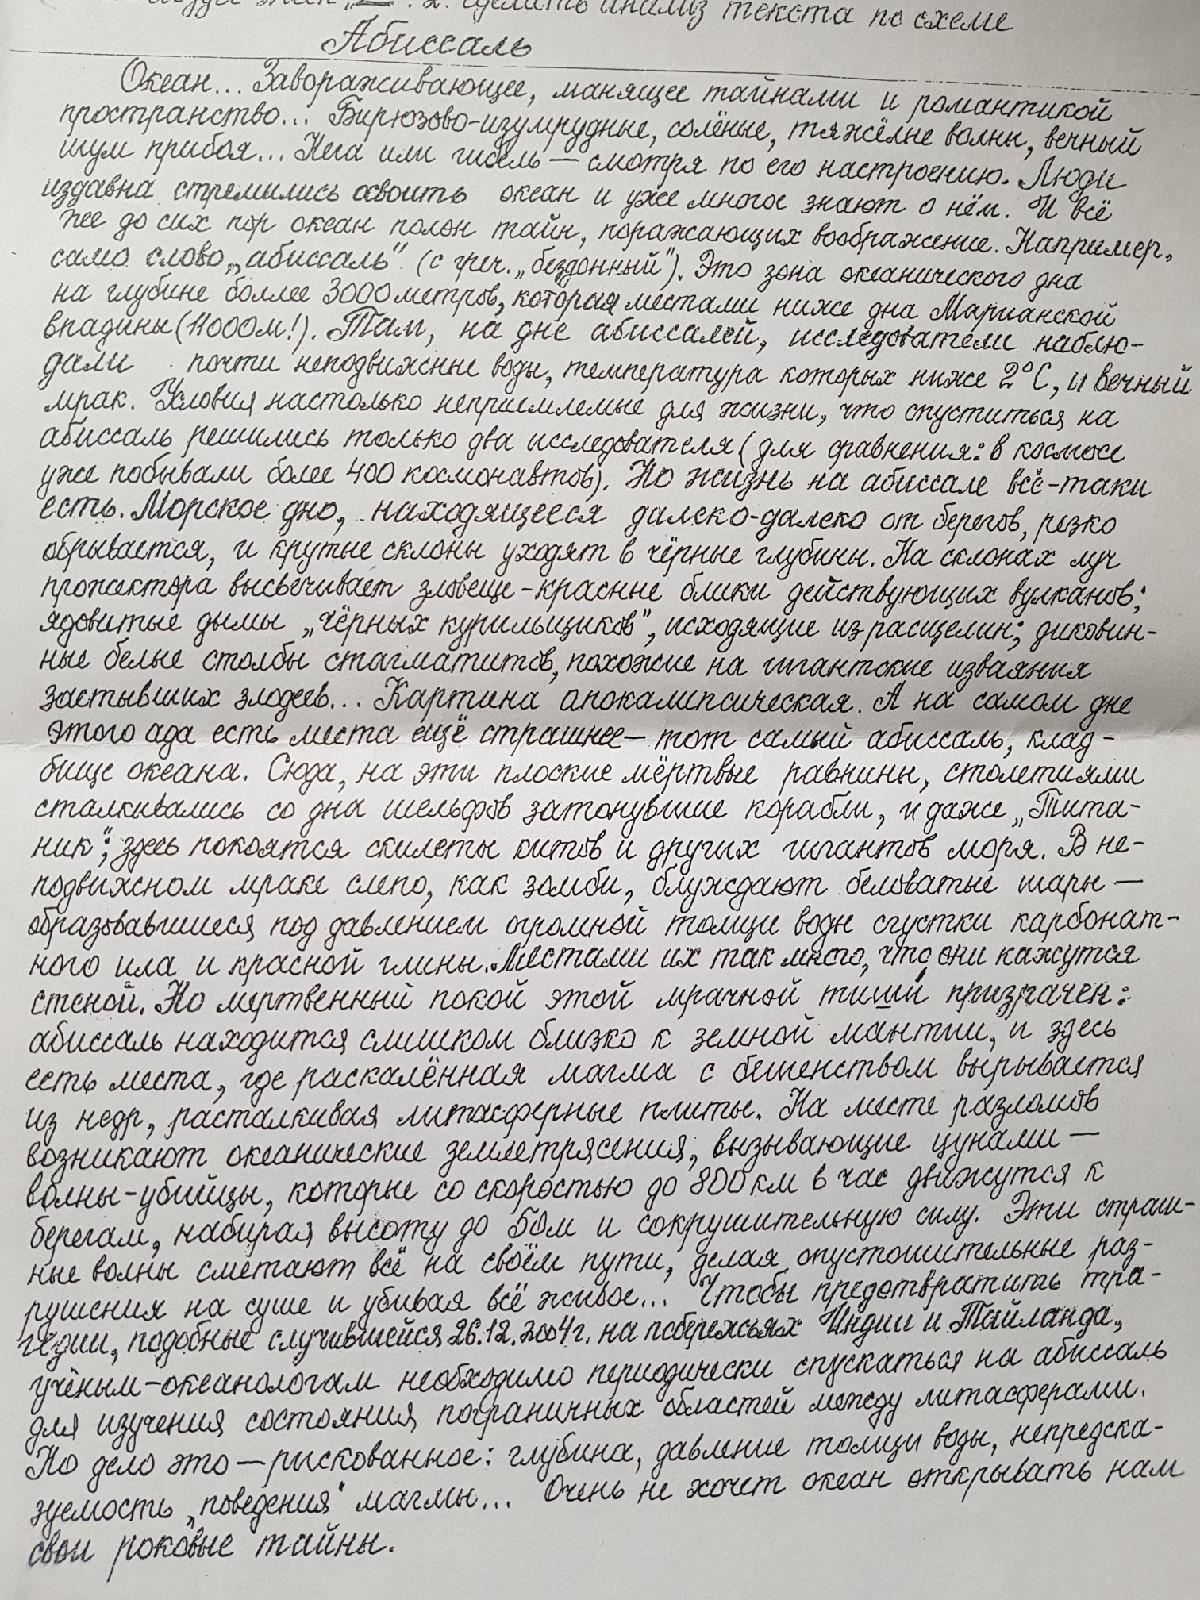 2. сделать анализ текста по схеме
Абиссаль
Океан... Завораживающее, манящее тайнами и романтикой
пространство... Бирюзово-изумрудные, солёные, тяжёлые волны, вечный
шум прибоя... Нега или гибель — смотря по его настроению. Люди
издавна стремились освоить океан и уже многое знают о нём. И всё
же до сих пор океан полон тайн, поражающих воображение. Например,
само слово „абиссаль" (с греч. „бездонный"). Это зона океанического дна
на глубине более 3000 метров, которая местами ниже дна Марианской
впадины (11000м!). Там, на дне абиссалей, исследователи наблю-
дали почти неподвижные воды, температура которых ниже 2°С, и вечный
мрак. Условия настолько неприемлемые для жизни, что спуститься на
абиссаль решились только два исследователя (для сравнения: в космосе
уже побывали более 400 космонавтов). Но жизнь на абиссале всё-таки
есть. Морское дно, находящееся далеко-далеко от берегов, резко
обрывается, и крутые склоны уходят в чёрные глубины. На склонах луч
прожектора высвечивает зловеще-красные блики действующих вулканов;
ядовитые дымы „чёрных курильщиков", исходящие из расщелин; диковин-
ные белые столбы стагматитов, похожие на гигантские изваяния
застывших злодеев... Картина апокалипсическая. А на самом дне
этого ада есть места ещё страшнее — тот самый абиссаль, клад-
бище океана. Сюда, на эти плоские мёртвые равнины, столетиями
сталкивались со дна шельфов затонувшие корабли, и даже „Тита-
ник"; здесь покоятся скилеты китов и других гигантов моря. В не-
подвижном мраке слепо, как зомби, блуждают беловатые шары —
образовавшиеся под давлением огромной толщи воды сгустки карбонат-
ного ила и красной глины. Местами их так много, что они кажутся
стеной. Но мертвенный покой этой мрачной тиши призрачен:
абиссаль находится слишком близко к земной мантии, и здесь
есть места, где раскалённая магма с бешенством вырывается
из недр, расталкивая литасферные плиты. На месте разломов
возникают океанические землетрясения, вызывающие цунами —
волны-убийцы, которые со скоростью до 800 км в час движутся к
берегам, набирая высоту до 50м и сокрушительную силу. Эти страш-
ные волны сметают всё на своём пути, делая опустошительные раз-
рушения на суше и убивая всё живое... Чтобы предотвратить тра-
гедии, подобные случившейся 26.12.2004г. на побережьях Индии и Тайланда,
учёным-океанологам необходимо периодически спускаться на абиссаль
для изучения состояния пограничных областей между литасферами.
Но дело это — рискованное: глубина, давление толщи воды, непредска-
зуемость „поведения" магмы... Очень не хочет океан открывать нам
свои роковые тайны.